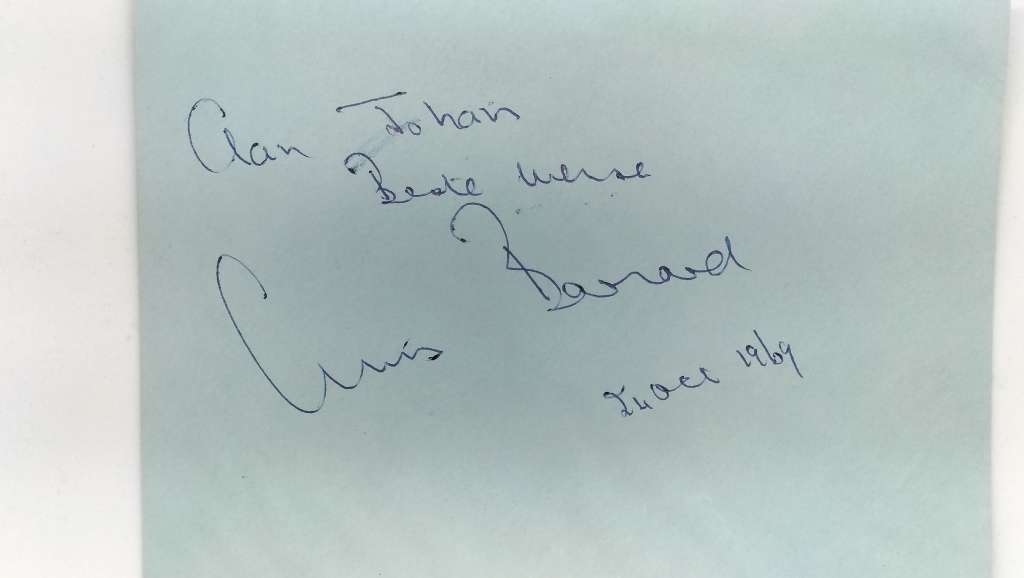 Aan Johan
Beste Wense
Chris Barnard
24 Oct 1969